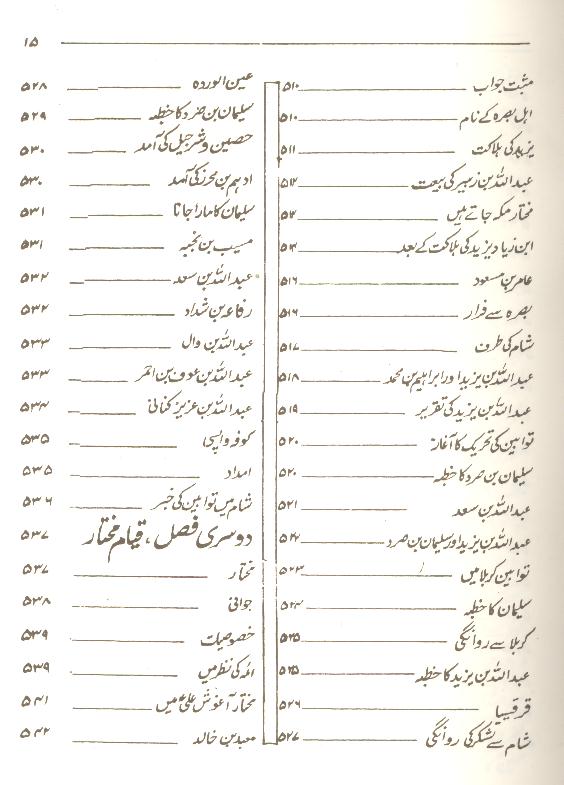 ۱۵
مثبت جواب ۵۱۰
اہل بصرہ کے نام ۵۱۰
یزید کی ہلاکت ۵۱۱
عبداللہ بن زبیر کی بیعت ۵۱۲
مختار مکہ جاتے ہیں
ابن زیاد یزید کی ہلاکت کے بعد
عامر بن مسعود ۵۱۶
بصرہ سے فرار ۵۱۶
شام کی طرف ۵۱۷
عبداللہ بن یزید اور ابراہیم بن محمد ۵۱۸
عبداللہ بن یزید کی تقریر ۵۱۹
توابین کی تحریک کا آغاز ۵۲۰
سلیمان بن صرد کا خطبہ ۵۲۰
عبداللہ بن سعد ۵۲۱
عبداللہ بن یزید اور سلیمان بن صرد ۵۲۲
توابین کربلا میں ۵۲۳
سلیمان کا خطبہ ۵۲۴
کربلا سے روانگی ۵۲۵
عبداللہ بن یزید کا خطبہ ۵۲۵
قرقیسیا ۵۲۶
شام سے لشکر کی روانگی ۵۲۷
عین الوردہ ۵۲۸
سلیمان بن صرد کا خطبہ ۵۲۹
حصین و شرجیل کی آمد ۵۳۰
ادہم بن محرز کی آمد ۵۳۰
سلیمان کا مارا جانا ۵۳۱
مسیب بن نجبہ ۵۳۱
عبداللہ بن سعد ۵۳۲
رفاعہ بن شداد ۵۳۲
عبداللہ بن وال ۵۳۳
عبداللہ بن عوف بن احمر ۵۳۳
عبداللہ بن عزیز کنانی ۵۳۴
کوفہ واپسی ۵۳۵
امداد ۵۳۵
شام میں توابین کی خبر ۵۳۶
دوسری فصل، قیام مختار ۵۳۷
مختار ۵۳۷
جوانی ۵۳۸
خصوصیات ۵۳۹
ائمہ کی نظر میں ۵۳۹
مختار آغوش علیؑ میں ۵۴۱
معبد بن خالد ۵۴۲